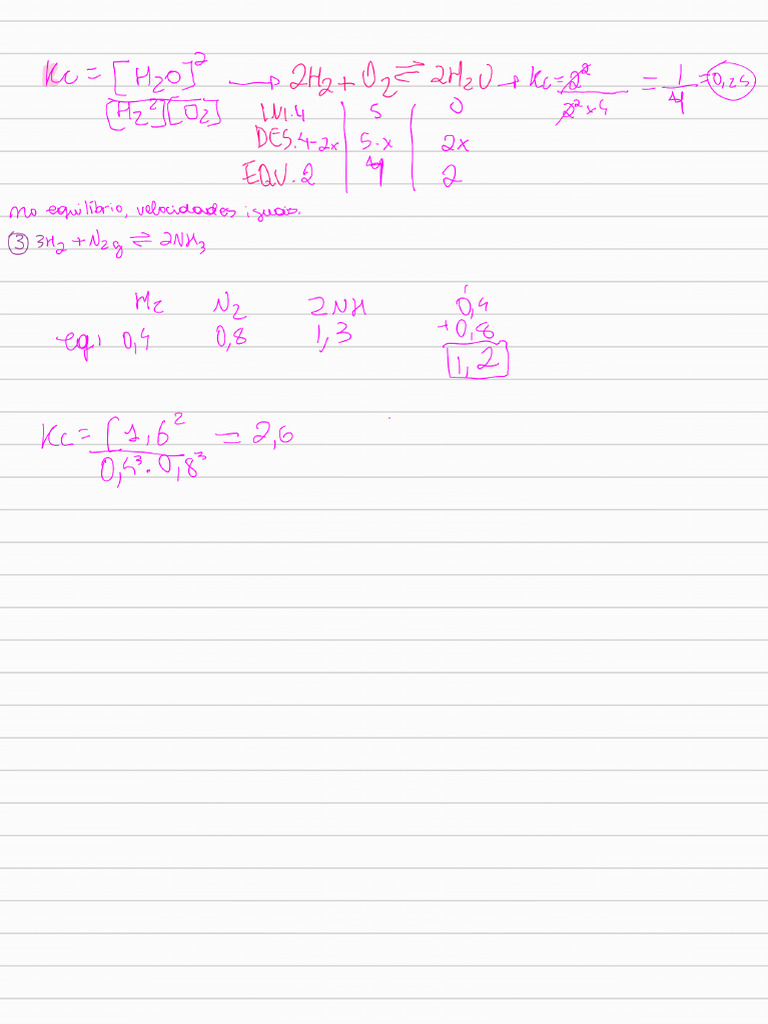 Kc = [H2O]² / [H2²][O2] → 2H2 + O2 ⇌ 2H2O → Kc = 2² / 2² x 4 = 1/4 = 0,25
INI. 4 | 5 | 0
DES. 4-2x | 5-x | 2x
EQU. 2 | 4 | 2
no equilíbrio, velocidades iguais.
③ 3H2 + N2g ⇌ 2NH3
H2 N2 2NH 0,4
eq: 0,4 0,8 1,3 +0,8
1,2
Kc = [1,6² / 0,4³ . 0,8³ = 2,6